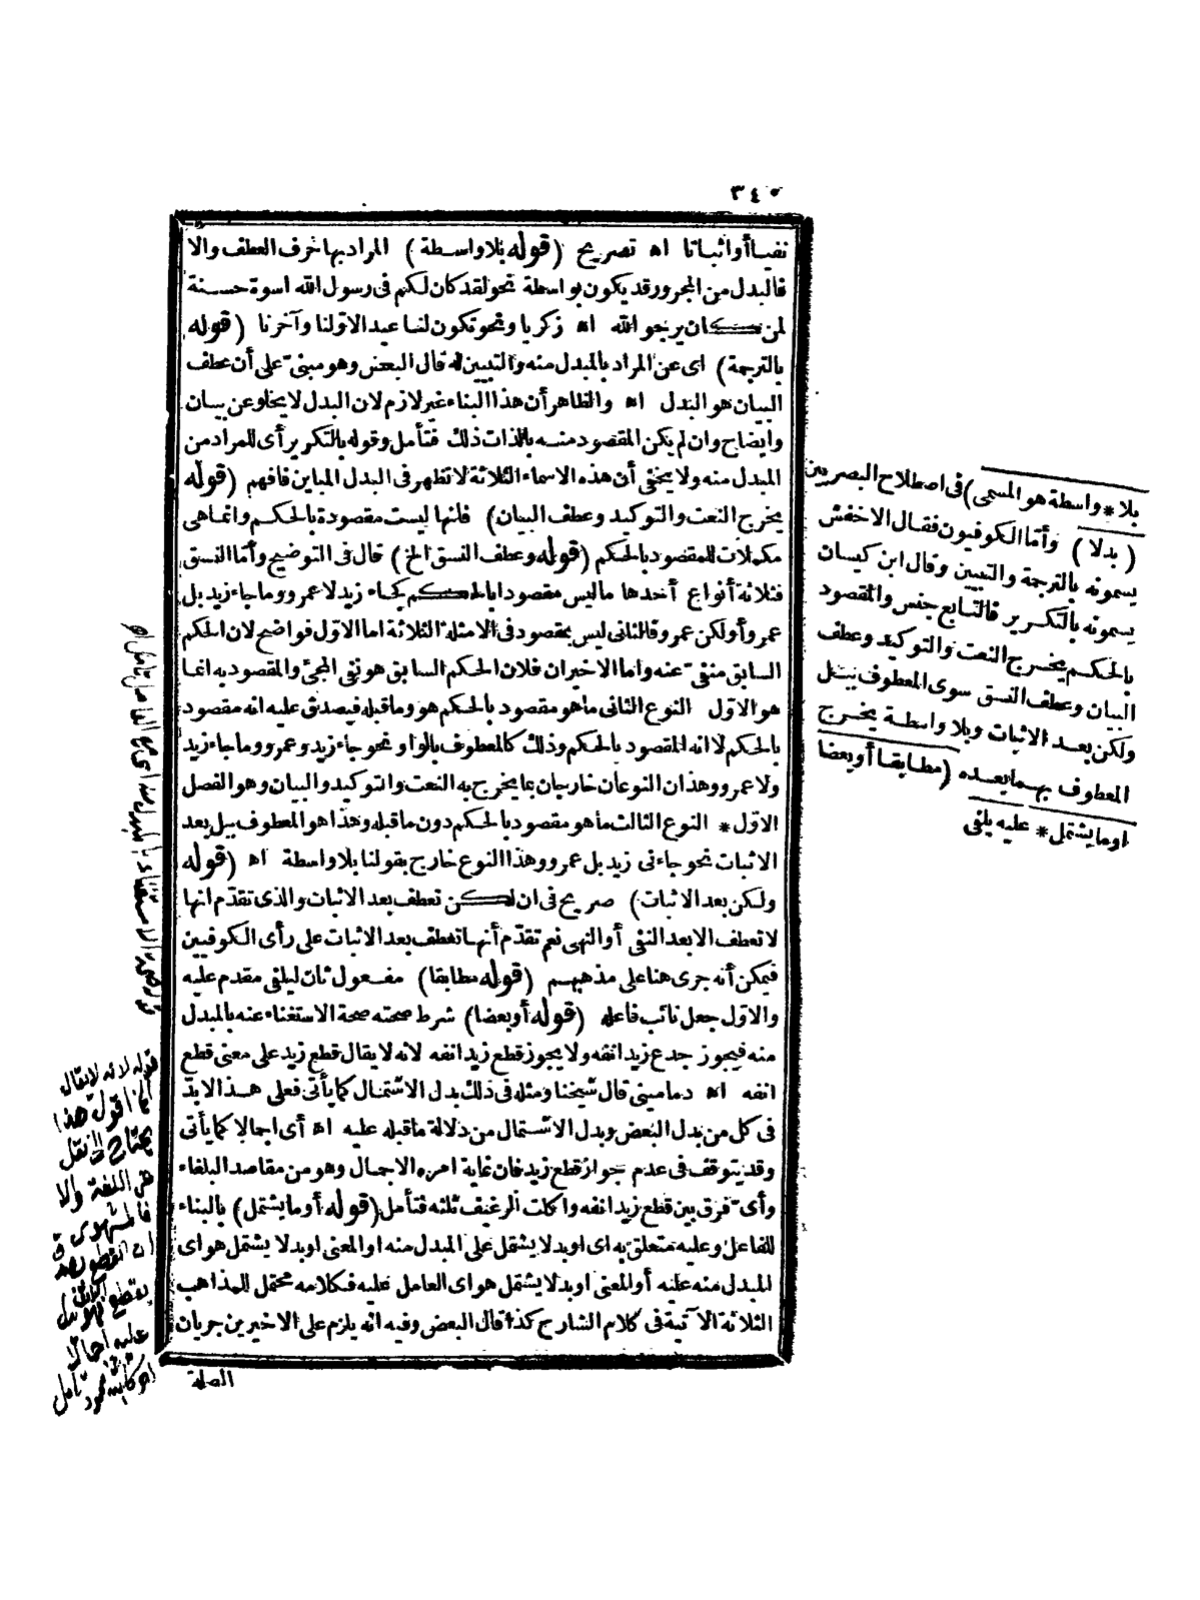 ٣٤٠
نفيا أو اثباتا اه تصريح (قوله بلا واسطة) المراد بها حرف العطف والا
فالبدل من المجرور قد يكون بواسطة نحو لقد كان لكم فى رسول الله اسوة حسنة
لمن كان يرجو الله اه زكريا ونحو تكون لنا عيد الاولنا وآخرنا (قوله
بالترجمة) اى عن المراد بالمبدل منه والتبيين له قال البعض وهو مبنى على أن عطف
البيان هو البدل اه والظاهر أن هذا البناء غير لازم لان البدل لا يخلو عن بيان
وايضاح وان لم يكن المقصود منه بالذات ذلك فتأمل وقوله بالتكرير أى للمراد من
المبدل منه ولا يخفى أن هذه الاسماء الثلاثة لا تظهر فى البدل المباين فافهم (قوله
يخرج النعت والتوكيد وعطف البيان) فانها ليست مقصودة بالحكم وانما هى
مكملات للمقصود بالحكم (قوله وعطف النسق الخ) قال فى التوضيح وأما النسق
فثلاثة أنواع أحدها ما ليس مقصودا بالحكم كجاء زيد لا عمرو وما جاء زيد بل
عمرو أو لكن عمرو فالثانى ليس بمقصود فى الامثلة الثلاثة اما الاول فواضح لان الحكم
السابق منفى عنه واما الاخيران فلان الحكم السابق هو نفى المجىء والمقصود به انما
هو الاول النوع الثانى ما هو مقصود بالحكم هو وما قبله فيصدق عليه انه مقصود
بالحكم لا انه المقصود بالحكم وذلك كالمعطوف بالواو نحو جاء زيد وعمرو وما جاء زيد
ولا عمرو وهذان النوعان خارجان بما يخرج به النعت والتوكيد والبيان وهو الفصل
الاول * النوع الثالث ما هو مقصود بالحكم دون ما قبله وهذا هو المعطوف ببل بعد
الاثبات نحو جاءنى زيد بل عمرو وهذا النوع خارج بقولنا بلا واسطة اه (قوله
ولكن بعد الاثبات) صريح فى ان لكن تعطف بعد الاثبات والذى تقدم انها
لا تعطف الا بعد النفى أو النهى نعم تقدم أنها تعطف بعد الاثبات على رأى الكوفيين
فيمكن أنه جرى هنا على مذهبهم (قوله مطابقا) مفعول ثان ليلفى مقدم عليه
والاول جعل نائب فاعله (قوله أو بعضا) شرط صحته صحة الاستغناء عنه بالمبدل
منه فيجوز جدع زيد انفه ولا يجوز قطع زيد انفه لانه لا يقال قطع زيد على معنى قطع
انفه اه دمامينى قال شيخنا ومثله فى ذلك بدل الاشتمال كما يأتى فعلى هذا لا بد
فى كل من بدل البعض وبدل الاشتمال من دلالة ما قبله عليه اه أى اجمالا كما يأتى
وقد يتوقف فى عدم جواز قطع زيد فان غاية امره الاجمال وهو من مقاصد البلغاء
وأى فرق بين قطع زيد انفه واكلت الرغيف ثلثه فتأمل (قوله أو ما يشتمل) بالبناء
للفاعل وعليه متعلق به اى او بدلا يشتمل على المبدل منه او المعنى او بدلا يشتمل هو اى
المبدل منه عليه أو المعنى او بدلا يشتمل هو اى العامل عليه فكلامه محتمل للمذاهب
الثلاثة الآتية فى كلام الشارح كذا قال البعض وفيه انه يلزم على الاخيرين جريان
الصلة
بلا * واسطة هو المسمى) فى اصطلاح البصريين
(بدلا) وأما الكوفيون فقال الاخفش
يسمونه بالترجمة والتبيين وقال ابن كيسان
يسمونه بالتكرير فالتابع جنس والمقصود
بالحكم يخرج النعت والتوكيد وعطف
البيان وعطف النسق سوى المعطوف ببل
ولكن بعد الاثبات وبلا واسطة يخرج
المعطوف بهما بعده (مطابقا أو بعضا
او ما يشتمل * عليه يلفى
قوله لانه لا يقال
الخ اقول هذا
يحتاج الى نقل
عن اللغة والا